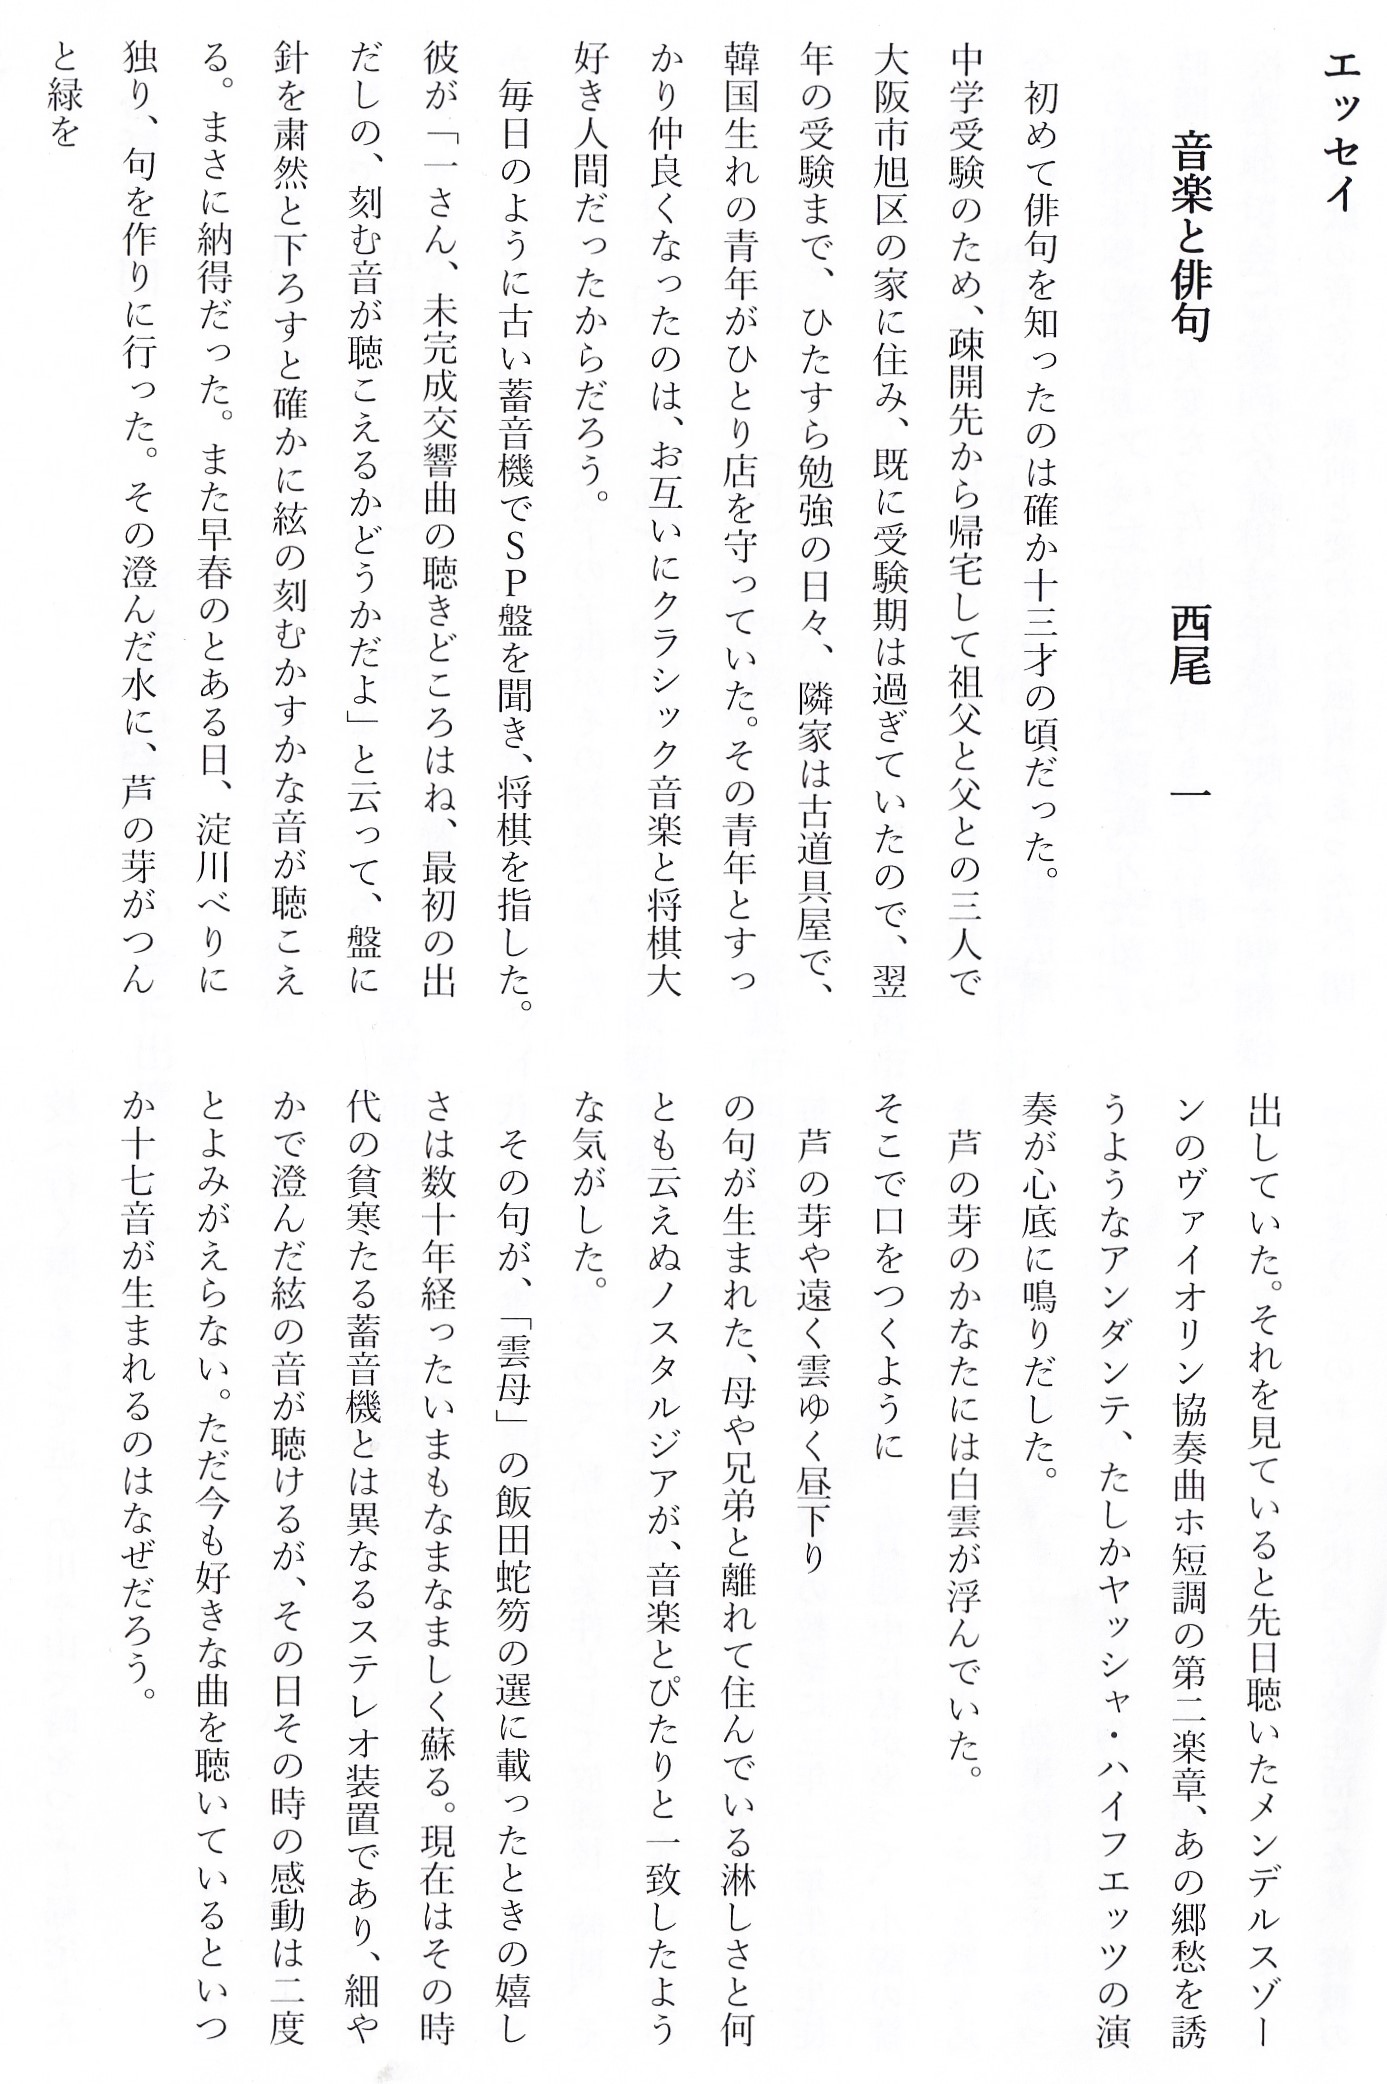 エッセイ
音楽と俳句　西尾　一
初めて俳句を知ったのは確か十三才の頃だった。
中学受験のため、疎開先から帰宅して祖父と父との三人で
大阪市旭区の家に住み、既に受験期は過ぎていたので、翌
年の受験まで、ひたすら勉強の日々、隣家は古道具屋で、
韓国生れの青年がひとり店を守っていた。その青年とすっ
かり仲良くなったのは、お互いにクラシック音楽と将棋大
好き人間だったからだろう。
毎日のように古い蓄音機でＳＰ盤を聞き、将棋を指した。
彼が「一さん、未完成交響曲の聴きどころはね、最初の出
だしの、刻む音が聴こえるかどうかだよ」と云って、盤に
針を粛然と下ろすと確かに絃の刻むかすかな音が聴こえ
る。まさに納得だった。また早春のとある日、淀川べりに
独り、句を作りに行った。その澄んだ水に、芦の芽がつん
と緑を
出していた。それを見ていると先日聴いたメンデルスゾー
ンのヴァイオリン協奏曲ホ短調の第二楽章、あの郷愁を誘
うようなアンダンテ、たしかヤッシャ・ハイフエッツの演
奏が心底に鳴りだした。
芦の芽のかなたには白雲が浮んでいた。
そこで口をつくように
芦の芽や遠く雲ゆく昼下り
の句が生まれた、母や兄弟と離れて住んでいる淋しさと何
とも云えぬノスタルジアが、音楽とぴたりと一致したよう
な気がした。
その句が、「雲母」の飯田蛇笏の選に載ったときの嬉し
さは数十年経ったいまもなまなましく蘇る。現在はその時
代の貧寒たる蓄音機とは異なるステレオ装置であり、細や
かで澄んだ絃の音が聴けるが、その日その時の感動は二度
とよみがえらない。ただ今も好きな曲を聴いているといつ
か十七音が生まれるのはなぜだろう。